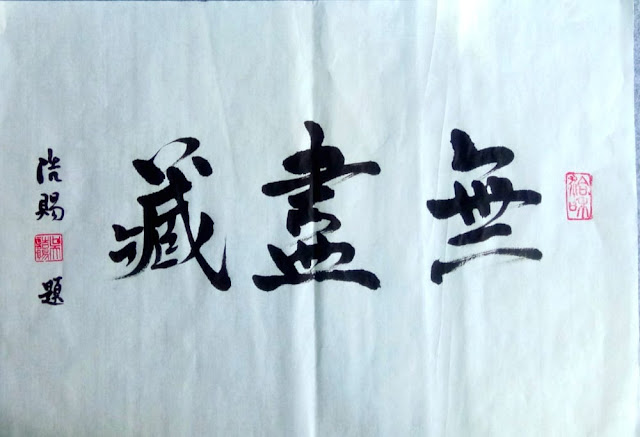 無盡藏
浩賜題